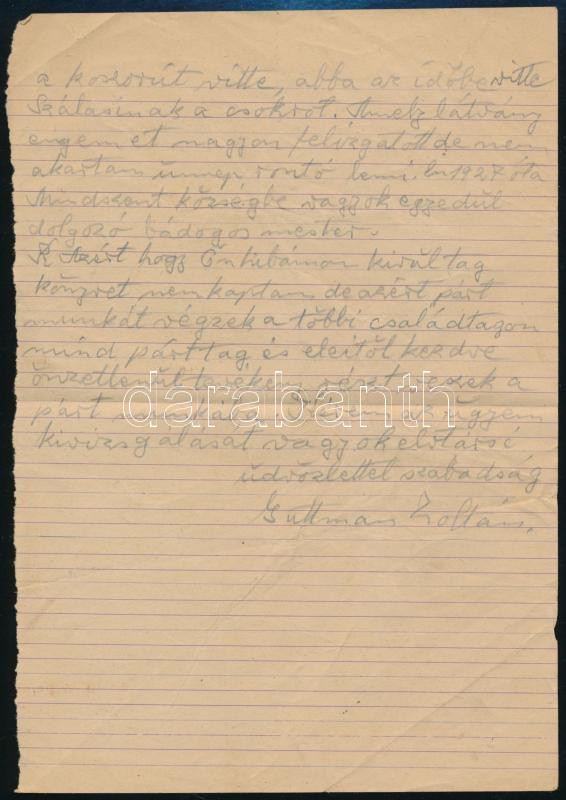 a koszorút vitte, abba az időbe vitte
Szálasinak a csokrot. Amely látvány
engemet nagyon felizgatott de nem
akartam ünnep rontó lenni. én 1927 óta
Mindszent községbe vagyok egyedül
dolgozó bádogos mester.
Azért hogy Önhibámon kívül tag
könyvet nem kaptam de azért párt
munkát végzek a többi családtagom
mind párttag és eleitől kezdve
önzetlenül részt vesznek a
párt Kérem az ügyem
kivizsgálását vagyok elvtársi
üdvözlettel szabadság
Guttman Zoltán.
darabanth